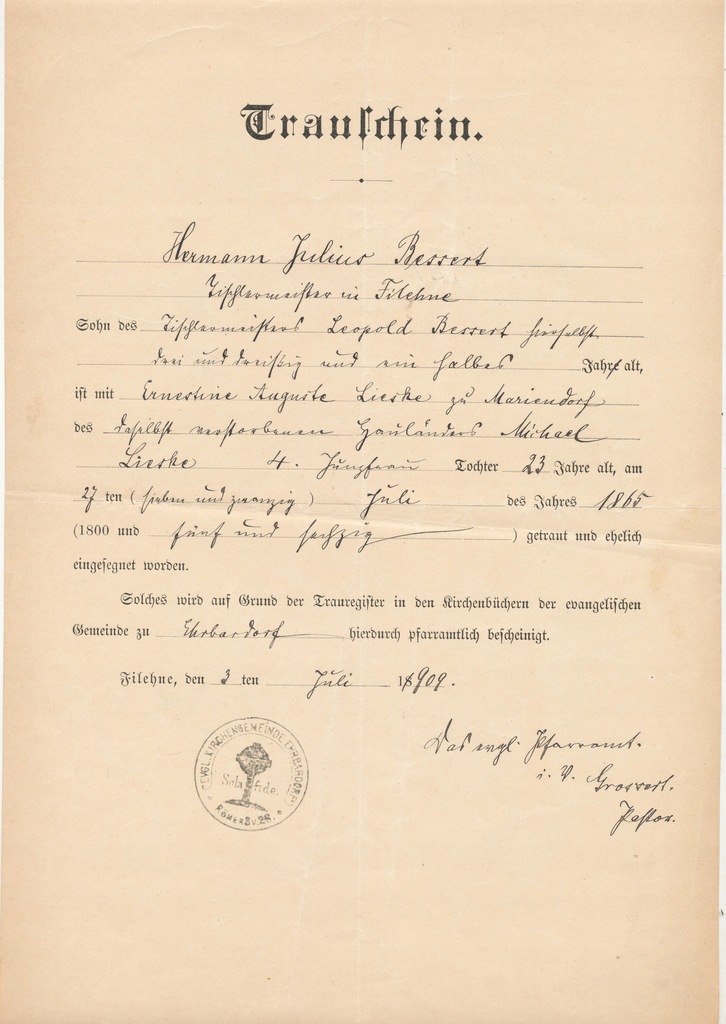 Trauschein.
Hermann Julius Bessert
Tischlermeister in Filehne
Sohn des Tischlermeisters Leopold Bessert hierselbst
drei und dreißig und ein halbes Jahre alt,
ist mit Ernestine Auguste Lieske zu Mariendorf
des daselbst verstorbenen Hauländers Michael
Lieske 4. Jungfrau Tochter 23 Jahre alt, am
27 ten (sieben und zwanzig) Juli des Jahres 1865
(1800 und fünf und sechzig) getraut und ehelich
eingesegnet worden.
Solches wird auf Grund der Trauregister in den Kirchenbüchern der evangelischen
Gemeinde zu Ehrbardorf hierdurch pfarramtlich bescheinigt.
Filehne, den 3 ten Juli 1909.
Das evgl. Pfarramt.
i. V. Grossert.
Pastor.
EVGL. KIRCHENGEMEINDE EHRBARDORF
Sola fide.
RÖMER 3 V. 28.